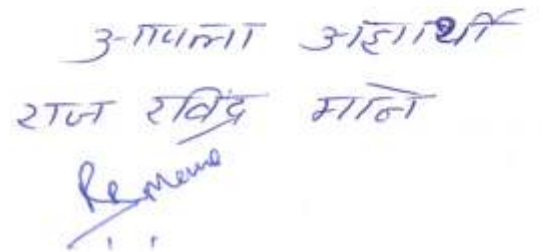 आपला अज्ञार्थी
राज रविंद्र माने